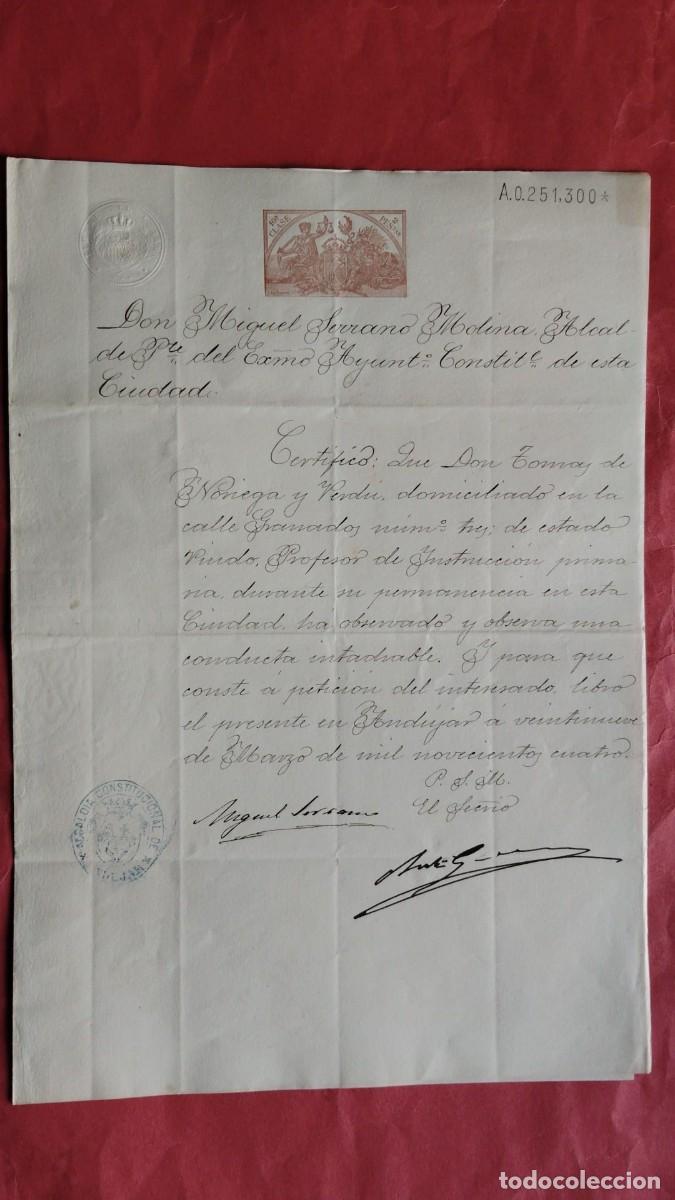 A.0.251,300*
10ª CLASE 2 PESTAS
Don Miguel Serrano Molina, Alcal-
de Pte. del Exmo Ayunto. Constitl. de esta
Ciudad.
Certifico: Que Don Tomas de
Noriega y Verdú, domiciliado en la
calle Granados núm.º tres; de estado
Viudo, Profesor de Instruccion prima-
ria, durante su permanencia en esta
Ciudad, ha observado y observa una
conducta intachable. Y para que
conste á peticion del interesado, libro
el presente en Andújar á veintinueve
de Marzo de mil novecientos cuatro.
P. S. M.
El Secrio
Miguel Serrano
ALCALDIA CONSTITUCIONAL DE ANDUJAR
todocoleccion